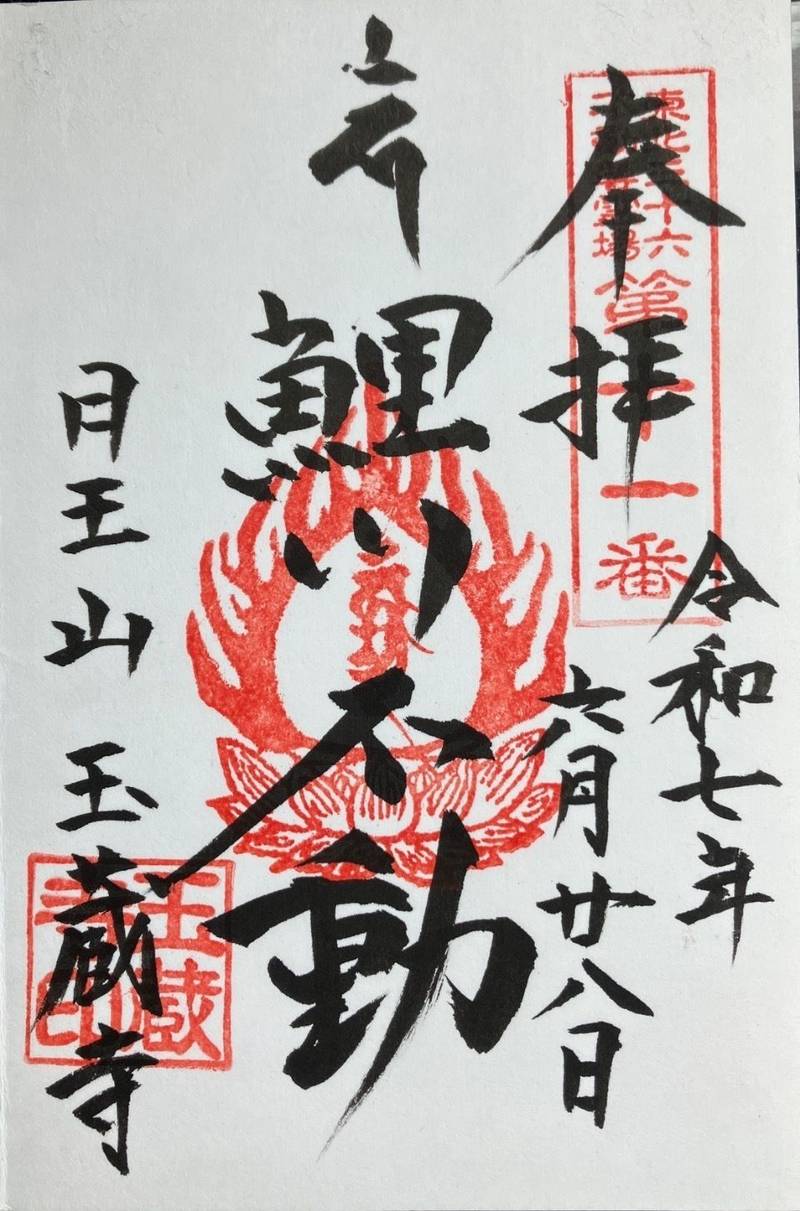 奉拝
令和七年
六月廿八日
鯉川不動
月王山 玉蔵寺
東北三十六
不動尊霊場
第十一番
玉蔵
寺印